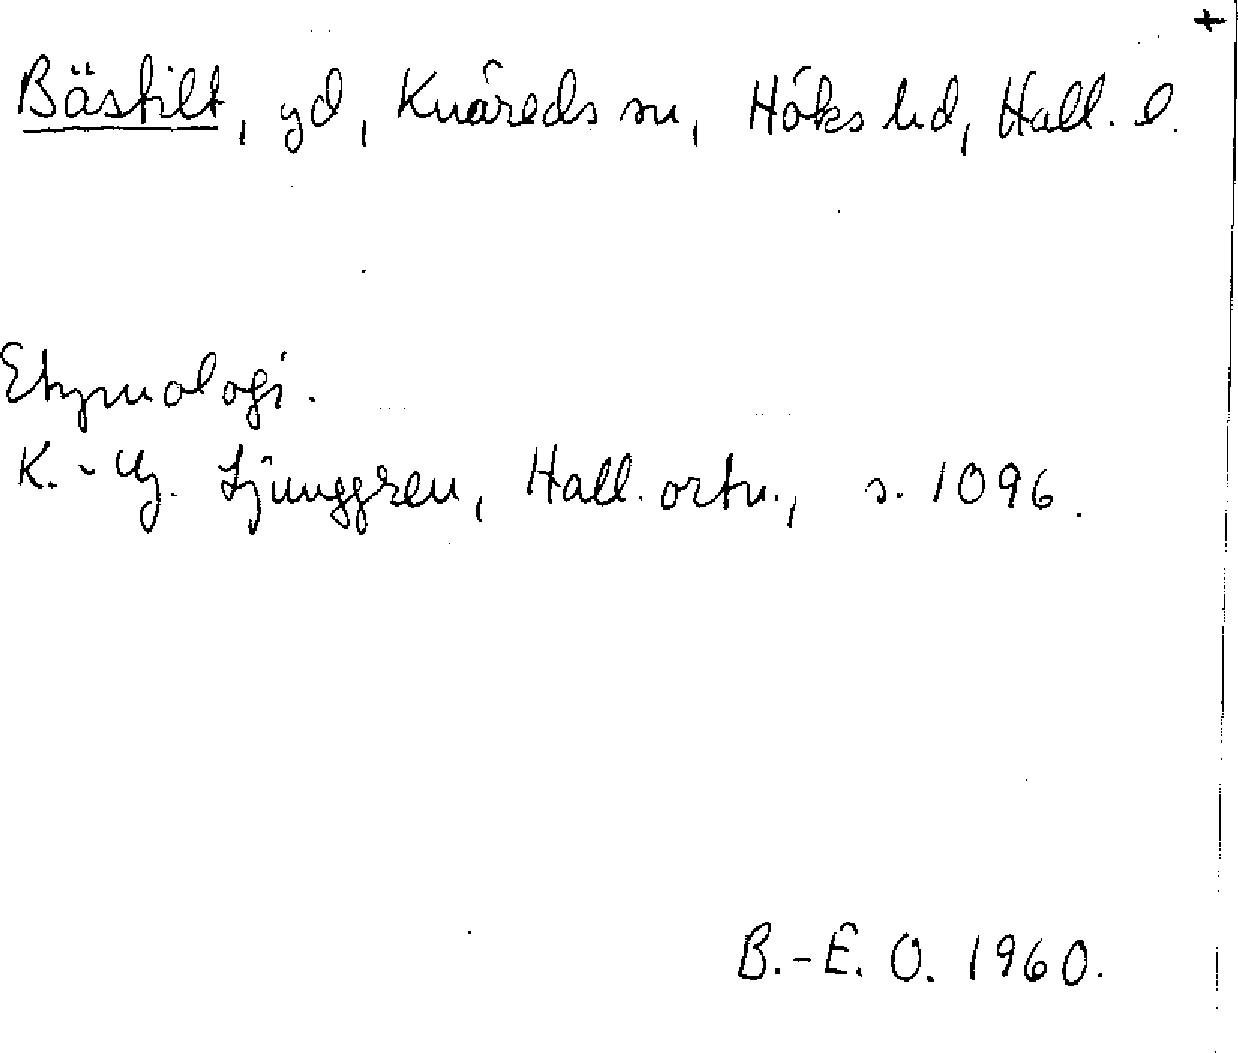 +
Bästilt, gd, Knäreds sn, Höks hd, Hall. l.
Etymologi.
K.-G. Ljunggren, Hall. ortn., s. 1096.
B.-E. O. 1960.